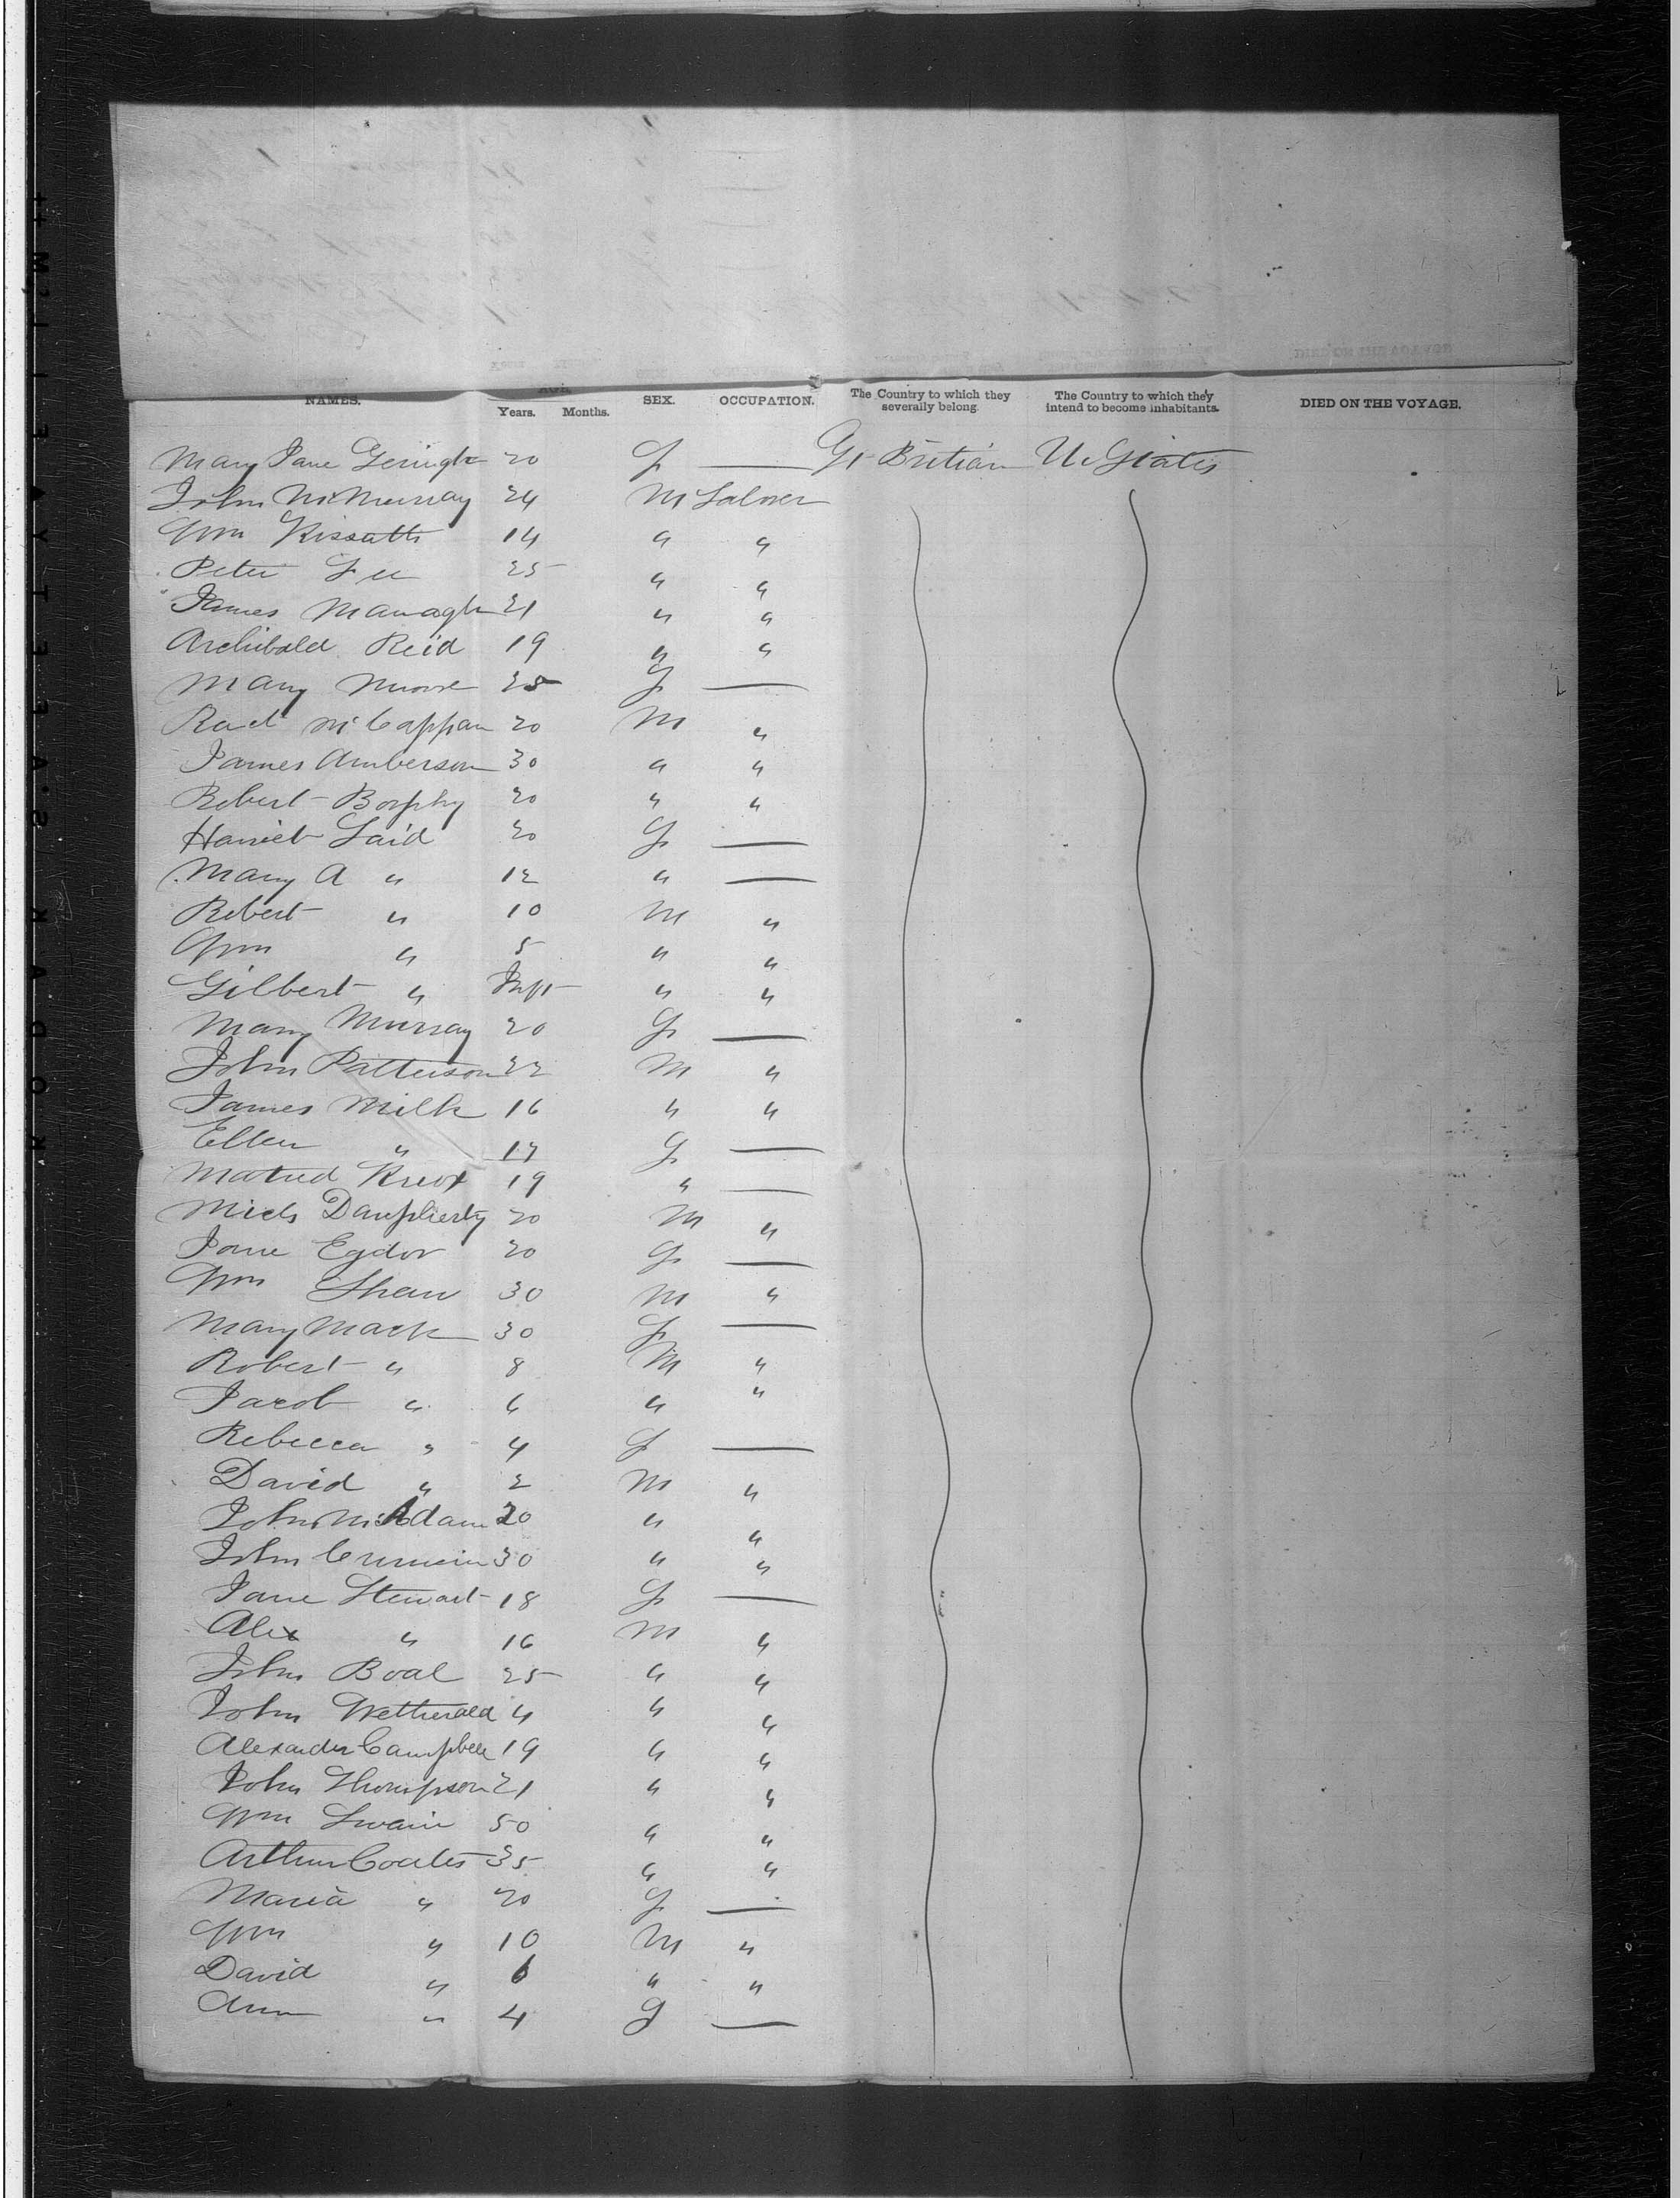 NAMES. AGE. Years. Months. SEX. OCCUPATION. The Country to which they severally belong. The Country to which they intend to become inhabitants. DIED ON THE VOYAGE.
Mary Jane 20 F — Gt Britian U. States
John McMurray 24 M Laborer
Wm 14 " "
Peter Lee 25 " "
James Managh 21 " "
Archibald Reid 19 " "
Mary Moore 25 F —
McCappan 20 M "
James Amberson 30 " "
Robert Borphy 20 " "
Harriet Laid 20 F —
Mary A " 12 " —
Robert " 10 M "
Wm " 5 " "
Gilbert " Inft " "
Mary Murray 20 F —
John Patterson 22 M "
James Milk 16 " "
Ellen " 17 F —
Knox 19 " —
20 M "
Jane Egdor 20 F —
Wm Shaw 30 M "
Mary Mack 30 F —
Robert " 8 M "
Jacob " 6 " "
Rebecca " 4 F —
David " 2 M "
John McAdam 20 " "
John 30 " "
Jane Stewart 18 F —
Alex " 16 M "
John Boal 25 " "
John Wetherald 4 " "
Alexander Campbell 19 " "
John Thompson 21 " "
Wm Swain 50 " "
Arthur Coates 35 " "
Maria " 20 F —
Wm " 10 M "
David " 6 " "
Ann " 4 F —